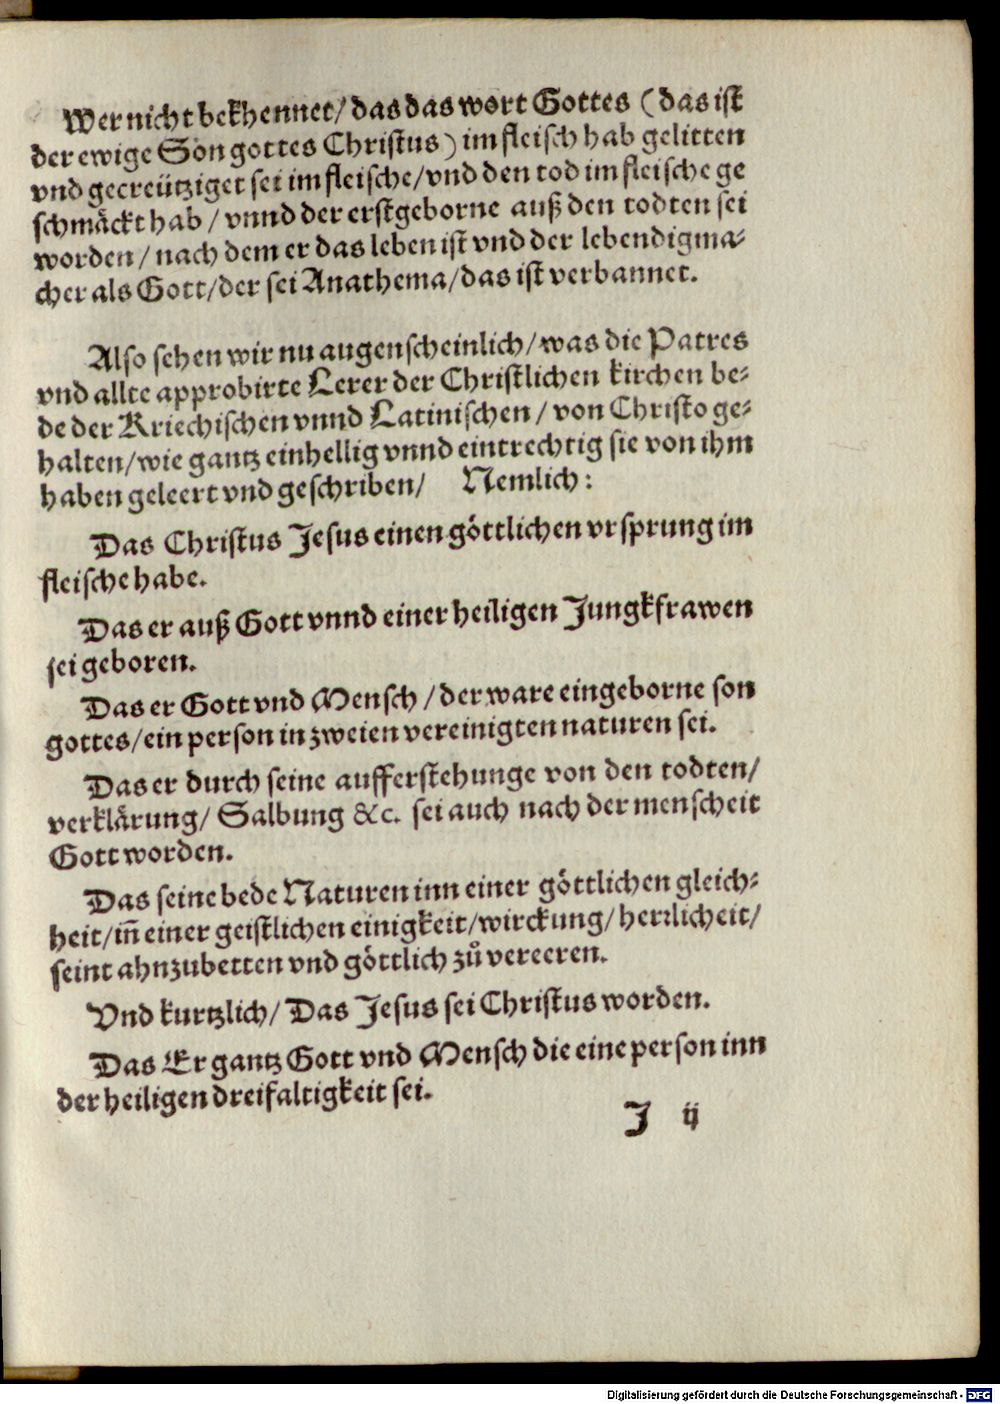 Wer nicht bekhennet/ das das wort Gottes (das ist
der ewige Son gottes Christus) im fleisch hab gelitten
vnd gecreütziget sei im fleische/ vnd den tod im fleische ge
schmäckt hab/ vnnd der erstgeborne auß den todten sei
worden/ nach dem er das leben ist vnd der lebendigma⸗
cher als Gott/ der sei Anathema/ das ist verbannet.
Also sehen wir nu augenscheinlich/ was die Patres
vnd allte approbirte Lerer der Christlichen kirchen be⸗
de der Kriechischen vnnd Latinischen/ von Christo ge⸗
halten/ wie gantz einhellig vnnd eintrechtig sie von ihm
haben geleert vnd geschriben/ Nemlich:
Das Christus Jesus einen göttlichen vrsprung im
fleische habe.
Das er auß Gott vnnd einer heiligen Jungkfrawen
sei geboren.
Das er Gott vnd Mensch/ der ware eingeborne son
gottes/ ein person in zweien vereinigten naturen sei.
Das er durch seine aufferstehunge von den todten/
verklärung/ Salbung &c. sei auch nach der menscheit
Gott worden.
Das seine bede Naturen inn einer göttlichen gleich⸗
heit/ iñ einer geistlichen einigkeit/ wirckung/ herrlicheit/
seint ahnzubetten vnd göttlich zů vereeren.
Vnd kurtzlich/ Das Jesus sei Christus worden.
Das Er gantz Gott vnd Mensch die eine person inn
der heiligen dreifaltigkeit sei.
J ij
Digitalisierung gefördert durch die Deutsche Forschungsgemeinschaft - DFG